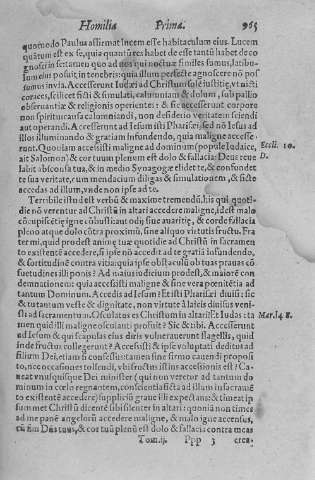 Homilia Prima. 965
quomodo Paulus affirmat lucem esse habitaculum eius. Lucem
quātum est ex se, quia quantū res habet de esse tantū habet de co
gnosci in se: tamen quo ad nos qui noctuæ similes sumus, latibu-
lum eius posuit, in tenebris: quia illum perfectè agnoscere nō pos
sumus in via. Accesserunt Iudæi ad Christum
coraces, scilicet ficti & simulati, calumniam & dolum, sub pallio
obseruantiæ & religionis operientes: & sic accesserunt corpore
non spiritu: causa calomniandi, non desiderio veritatem sciendi
aut operandi. Accesserunt ad Iesum isti Pharisæi, sed nō Iesus ad
illos illuminando & gratiam infundendo, quia maligne accesse-
runt. Quoniam accessisti maligne ad dominum (popule Iudaice,
ait Salomon) & cor tuum plenum est dolo & fallacia: Deus reue
labit absconsa tua, & in medio Synagogæ elidet te, & confundet
te sua veritate, tum mendacium diligas & simulationem, & ficte
accedas ad illum, vnde non ipse ad te.
Eccli. 10.
D.
Terribile istud est verbū & maximè tremendū, his qui quoti-
die nō verentur ad Christū in altari accedere malignè, idest malo
cōcupiscētiæ igne cōbusti: aut odij siue auaritiæ, & corde fallacia
pleno atque dolo cōtra proximū, sine aliquo virtutis fructu. Fra
ter mi, quid prodest animę tuæ quotidie ad Christū in sacramen
to existentē accedere, si ipse nō accedit ad te gratiā infundendo,
& fortitudinē contra vitia: quia ipse obstaculū ob tuas prauas cō
suetudines illi ponis? Ad maius iudicium prodest, & maiorē con
demnationem: quia accessisti malignè & sine vera pœnitētia ad
tantum Dominum. Accedis ad Iesum & isti Pharisæi diuisi: sic
& tu tantum veste & dignitate, non virtute à laicis diuisus veni-
sti ad sacramentum. Osculatus es Christum in altari & Iudas: ta
men quid illi maligne osculanti profuit? Sic & tibi. Accesserunt
ad Iesum & qui scapulas eius diris vulnerauerunt flagellis, quid
inde fructus collegerunt? Accessisti & ipse voluptati deditus ad
filium Dei, etiam si confessus: tamen sine firmo cauendi proposi
to, nec occasiones tollendi, vbi fructus istius accessionis est? Ca-
ueat vnusquisque Dei minister (qui non veretur ad tantum do
minum in cœlo regnantem, conscientia ficta ad illum in sacramē
to existentē accedere) supplicium graue illi expectans: & timeat ip
sum met Christum dicentē sibi silenter in altari: quoniā non times
ad me panē angelorū accedere maligne, & malo igne accensus,
cū sim Dn̄s tuus, & cor tuū plenū est dolo & fallacia contra meas
Mar. 14 8.
Tom. ij. Ppp 3 crea-